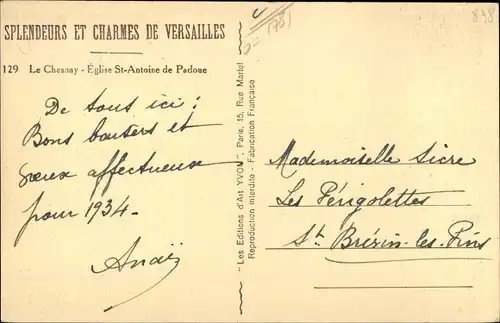 SPLENDEURS ET CHARMES DE VERSAILLES
129 Le Chesnay - Église St-Antoine de Padoue
De tous ici :
Bons baisers et
vœux affectueux
pour 1934 -
Anaïs
"Les Editions d'Art YVON", Paris, 15, Rue Martel
Reproduction interdite - Fabrication Française
(78)
Mademoiselle Sicre
Les Périgolettes
St. Brévin-les-Pins